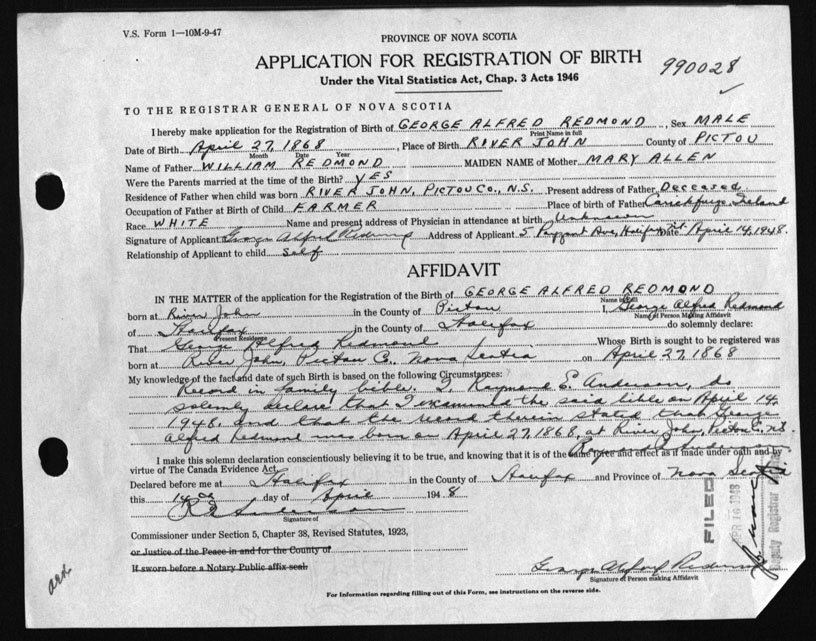 V.S. Form 1—10M-9-47
PROVINCE OF NOVA SCOTIA
APPLICATION FOR REGISTRATION OF BIRTH
990028
Under the Vital Statistics Act, Chap. 3 Acts 1946
TO THE REGISTRAR GENERAL OF NOVA SCOTIA
I hereby make application for the Registration of Birth of GEORGE ALFRED REDMOND, Sex MALE
Print Name in full
Date of Birth April 27, 1868, Place of Birth RIVER JOHN County of PICTOU
Month Date Year
Name of Father WILLIAM REDMOND MAIDEN NAME of Mother MARY ALLEN
Were the Parents married at the time of the Birth? YES
Residence of Father when child was born RIVER JOHN, PICTOU CO., N.S. Present address of Father Deceased
Occupation of Father at Birth of Child FARMER Place of birth of Father Ireland
Race WHITE Name and present address of Physician in attendance at birth Unknown
Signature of Applicant George Alfred Redmond Address of Applicant 5 Ave, Halifax Date April 14, 1948.
Relationship of Applicant to child self
AFFIDAVIT
IN THE MATTER of the application for the Registration of the Birth of GEORGE ALFRED REDMOND
Name in full
born at River John in the County of Pictou I, George Alfred Redmond
Name of Person Making Affidavit
of Halifax in the County of Halifax do solemnly declare:
Present Residence
That George Alfred Redmond Whose Birth is sought to be registered was
born at River John, Pictou Co., Nova Scotia on April 27, 1868
My knowledge of the fact and date of such Birth is based on the following Circumstances:
Record in family bible. I, Raymond E. Anderson, do
solemnly declare that I examined the said bible on April 14,
1948. and that the record therein stated that George
Alfred Redmond was born on April 27, 1868, at River John, Pictou Co. N.S.
I make this solemn declaration conscientiously believing it to be true, and knowing that it is of the same force and effect as if made under oath and by
virtue of The Canada Evidence Act.
Declared before me at Halifax in the County of Halifax and Province of Nova Scotia
this 14 day of April 1948
R E Anderson
Signature of
Commissioner under Section 5, Chapter 38, Revised Statutes, 1923,
or Justice of the Peace in and for the County of
If sworn before a Notary Public affix seal.
George Alfred Redmond
Signature of Person making Affidavit
FILED
APR 16 1948
Deputy Registrar
For Information regarding filling out of this Form, see instructions on the reverse side.